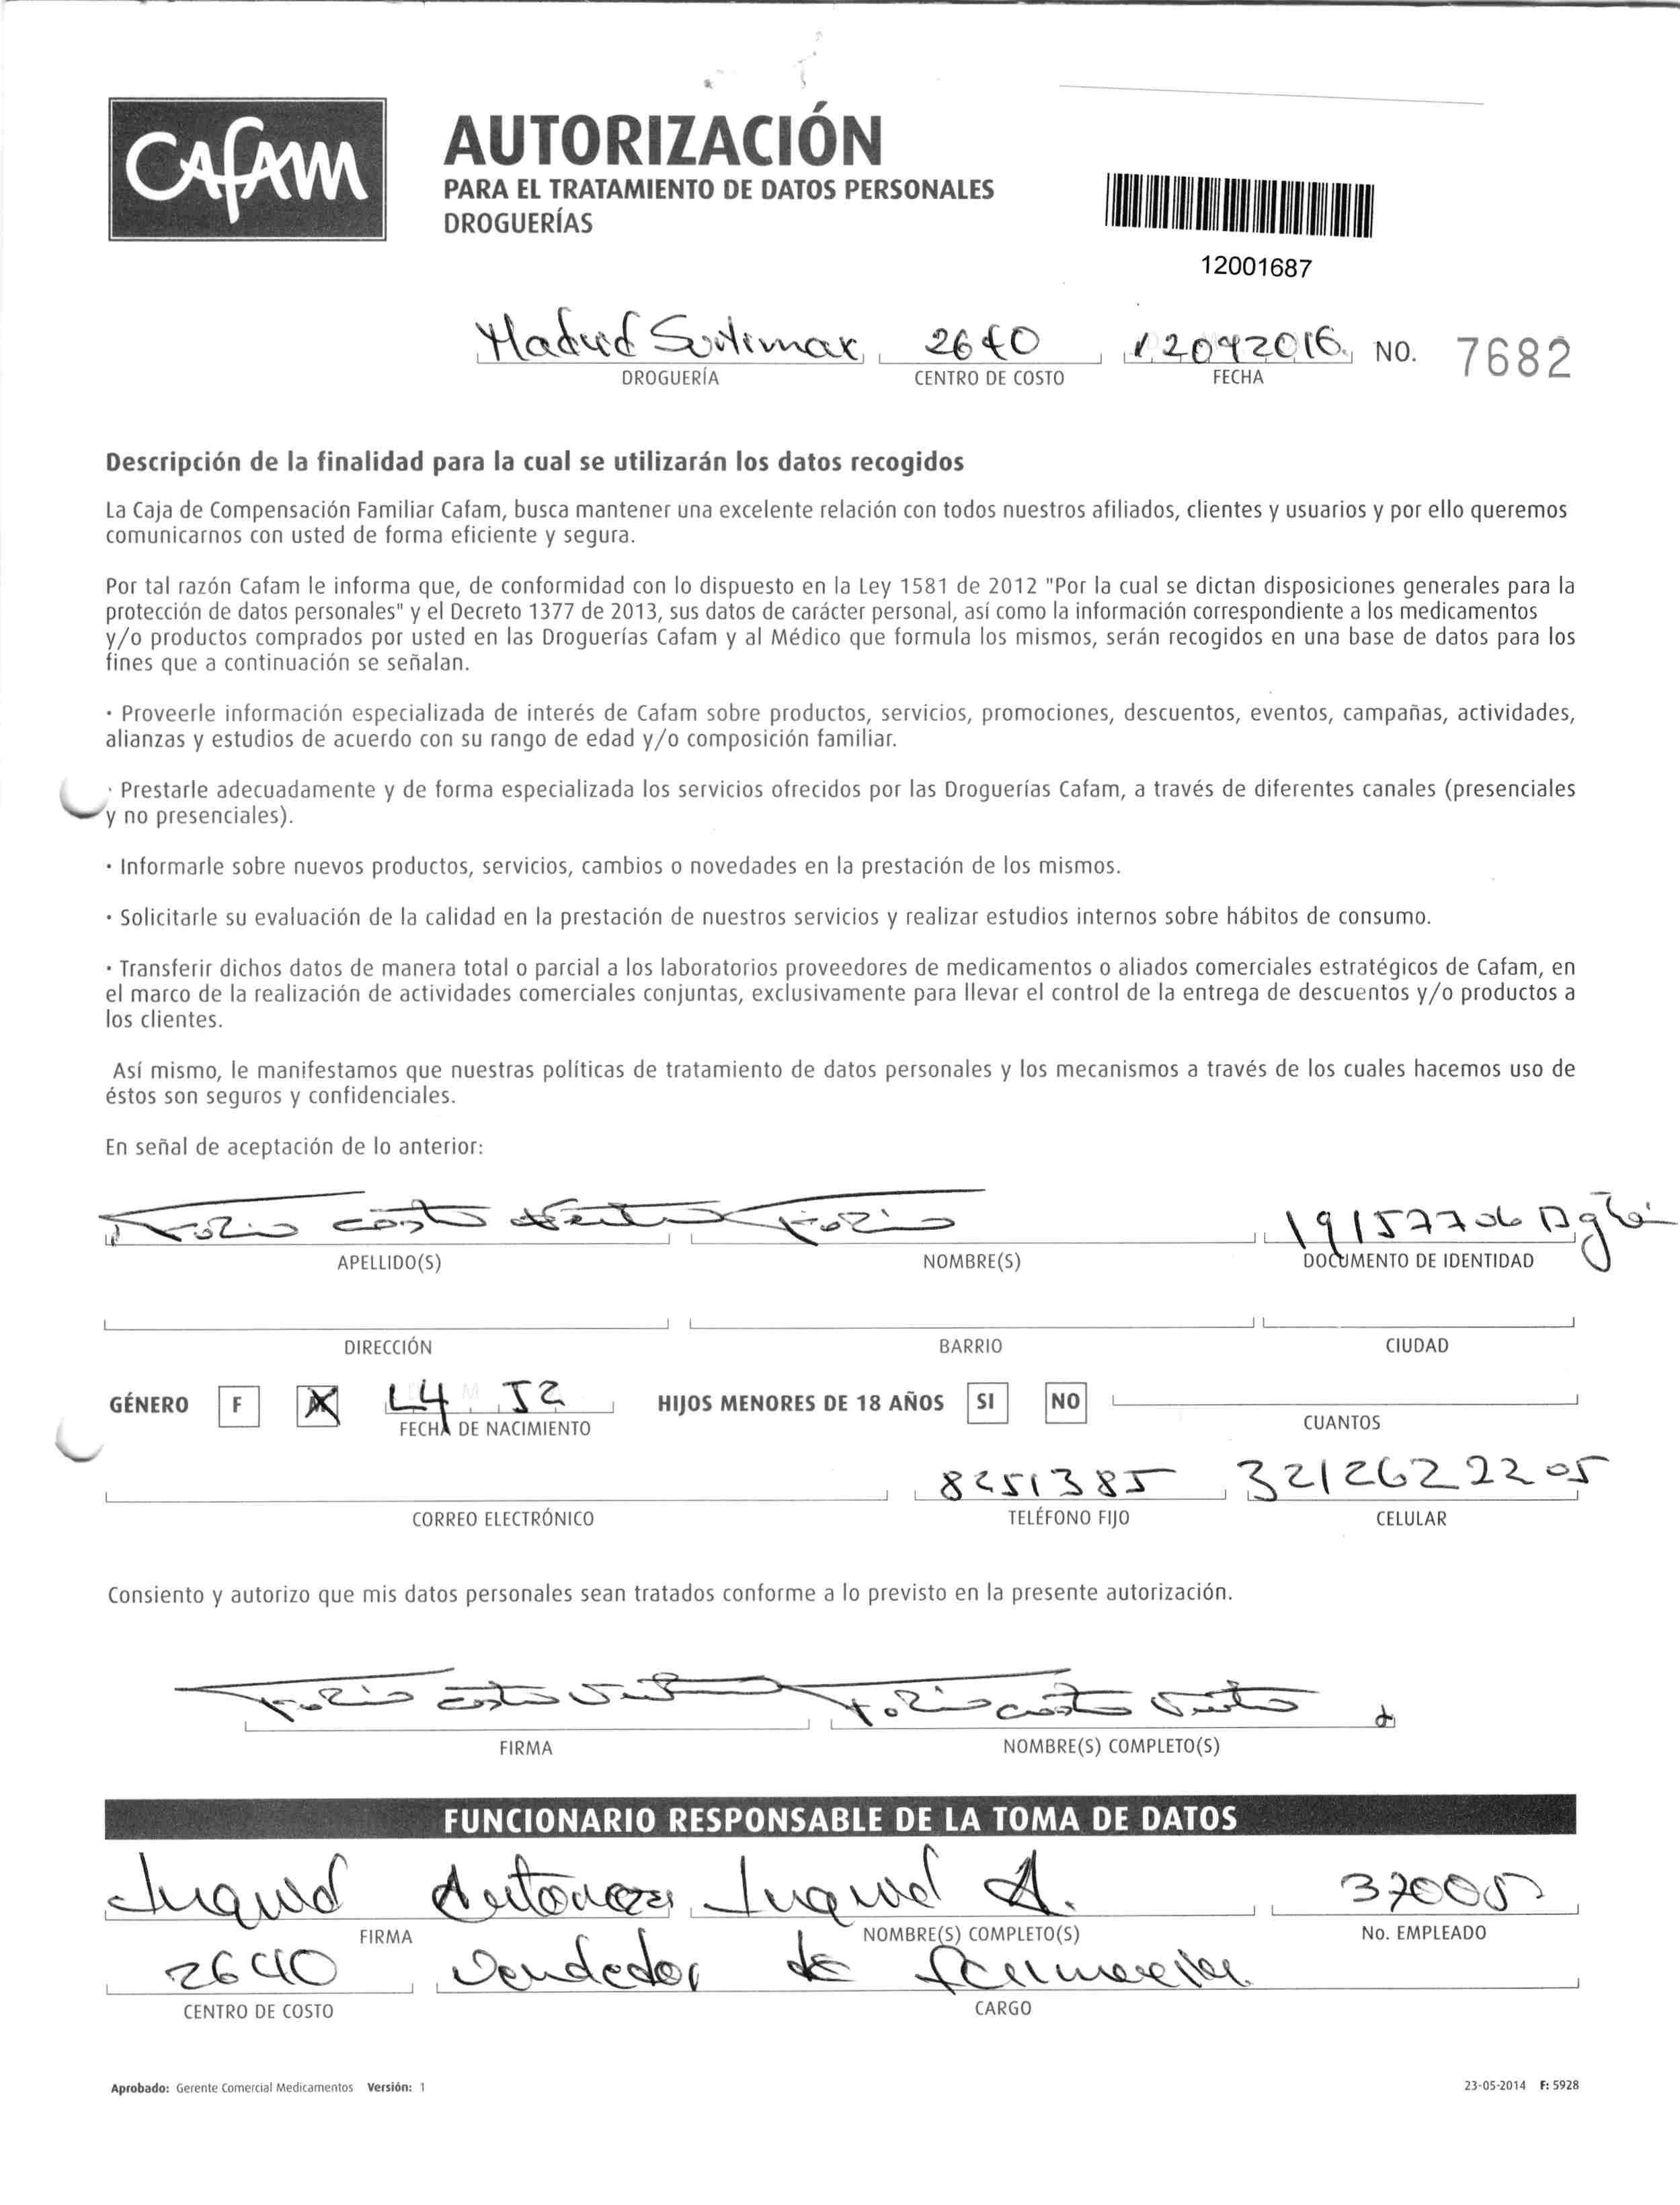 CAFAM
AUTORIZACIÓN
PARA EL TRATAMIENTO DE DATOS PERSONALES
DROGUERÍAS
12001687
Madrid Surtimax 2640 12042016 NO. 7682
DROGUERÍA CENTRO DE COSTO FECHA
Descripción de la finalidad para la cual se utilizarán los datos recogidos
La Caja de Compensación Familiar Cafam, busca mantener una excelente relación con todos nuestros afiliados, clientes y usuarios y por ello queremos
comunicarnos con usted de forma eficiente y segura.
Por tal razón Cafam le informa que, de conformidad con lo dispuesto en la Ley 1581 de 2012 "Por la cual se dictan disposiciones generales para la
protección de datos personales" y el Decreto 1377 de 2013, sus datos de carácter personal, así como la información correspondiente a los medicamentos
y/o productos comprados por usted en las Droguerías Cafam y al Médico que formula los mismos, serán recogidos en una base de datos para los
fines que a continuación se señalan.
· Proveerle información especializada de interés de Cafam sobre productos, servicios, promociones, descuentos, eventos, campañas, actividades,
alianzas y estudios de acuerdo con su rango de edad y/o composición familiar.
· Prestarle adecuadamente y de forma especializada los servicios ofrecidos por las Droguerías Cafam, a través de diferentes canales (presenciales
y no presenciales).
· Informarle sobre nuevos productos, servicios, cambios o novedades en la prestación de los mismos.
· Solicitarle su evaluación de la calidad en la prestación de nuestros servicios y realizar estudios internos sobre hábitos de consumo.
· Transferir dichos datos de manera total o parcial a los laboratorios proveedores de medicamentos o aliados comerciales estratégicos de Cafam, en
el marco de la realización de actividades comerciales conjuntas, exclusivamente para llevar el control de la entrega de descuentos y/o productos a
los clientes.
Así mismo, le manifestamos que nuestras políticas de tratamiento de datos personales y los mecanismos a través de los cuales hacemos uso de
éstos son seguros y confidenciales.
En señal de aceptación de lo anterior:
APELLIDO(S) NOMBRE(S) DOCUMENTO DE IDENTIDAD
DIRECCIÓN BARRIO CIUDAD
GÉNERO F M 52 HIJOS MENORES DE 18 AÑOS SI NO
FECHA DE NACIMIENTO CUANTOS
8251385 3212622205
CORREO ELECTRÓNICO TELÉFONO FIJO CELULAR
Consiento y autorizo que mis datos personales sean tratados conforme a lo previsto en la presente autorización.
FIRMA NOMBRE(S) COMPLETO(S)
FUNCIONARIO RESPONSABLE DE LA TOMA DE DATOS
A. 37005
FIRMA NOMBRE(S) COMPLETO(S) No. EMPLEADO
2640 Vendedor de farmacia
CENTRO DE COSTO CARGO
Aprobado: Gerente Comercial Medicamentos Versión: 1 23-05-2014 F: 5928